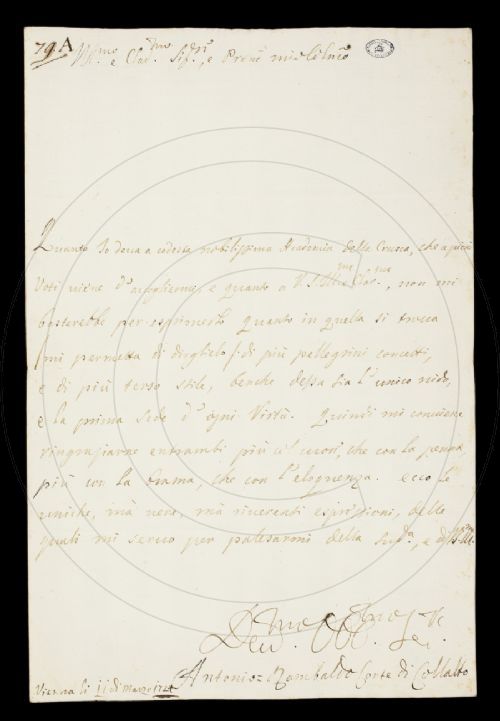 79. A
Ill.mo e Clar.mo Sig.r, e Pron.e mio
Quanto Io deva a codesta nobilissima Academia della Crusca, che a pieni
Voti viene d'accogliermi, e quanto a V. S. Ill.ma e Clar.ma, non mi
basterebbe per esprimerlo quanto in quella si trova
/mi permetta di dirglielo/ di più pellegrini concetti,
e di più terso stile, benche dessa sia l'unico nido,
e la prima sede d'ogni Virtù. Quindi mi conviene
ringraziarne entrambi più col cuore, che con la penna,
più con la brama, che con l'eloquenza. ecco le
uniche, mà vere, mà riverenti espressioni, delle
quali mi servo per palesarmi della sud.a, e di V. S. Ill.
Dev.mo Obl. Se.
Antonio Rambaldo Conte di Collalto
Vienna li 11 di Marzo